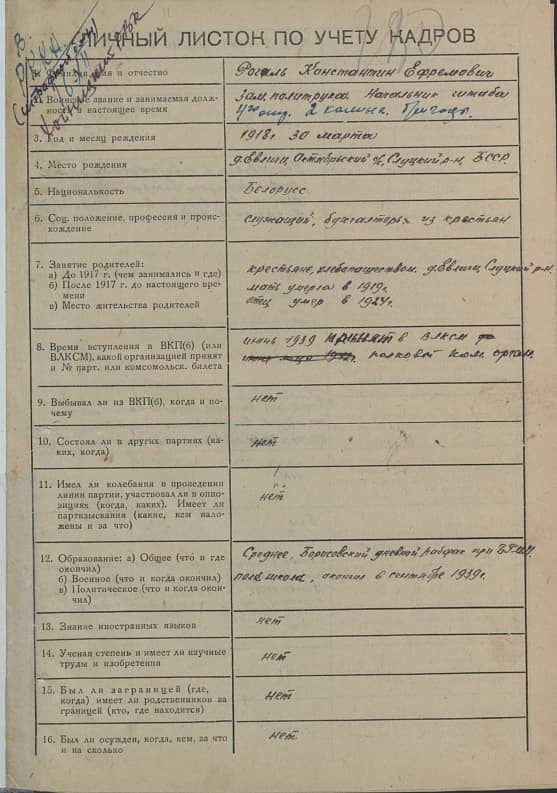 В РККА
ЛИЧНЫЙ ЛИСТОК ПО УЧЕТУ КАДРОВ
и отчество
Рогаль Константин Ефремович
Воинское звание и занимаемая долж-
ность в настоящее время
Зам. политрука. Начальник штаба
2 калинк. бригады.
3. Год и месяц рождения
1918 г. 30 марта
4. Место рождения
д. Евличи, Октябрьский с/с, Слуцкий р-н, БССР.
5. Национальность
Белорусс
6. Соц. положение, профессия и проис-
хождение
служащий, бухгалтеръ из крестьян
7. Занятие родителей:
а) До 1917 г. (чем занимались и где)
б) После 1917 г. до настоящего вре-
мени
в) Место жительства родителей
крестьяне, хлебопашеством. д. Евличи, Слуцкий р-н.
мать умерла в 1919 г.
отец умер в 1924 г.
8. Время вступления в ВКП(б) (или
ВЛКСМ), какой организацией принят
и № парт. или комсомольск. билета
июнь 1939 принят в ВЛКСМ
полковой ком. орган.
9. Выбывал ли из ВКП(б), когда и по-
чему
нет
10. Состоял ли в других партиях (ка-
ких, когда)
нет
11. Имел ли колебания в проведении
линии партии, участвовал ли в оппо-
зициях (когда, каких). Имеет ли
партвзыскания (какие, кем нало-
жены и за что)
нет
12. Образование: а) Общее (что и где
окончил)
б) Военное (что и когда окончил)
в) Политическое (что и когда окон-
чил)
Среднее, Борисовский дневной рабфак при
полк. школа, окончил в сентябре 1939 г.
13. Знание иностранных языков
нет
14. Ученая степень и имеет ли научные
труды и изобретения
нет
15. Был ли заграницей (где,
когда) имеет ли родственников за
границей (кто, где находится)
нет
16. Был ли осужден, когда, кем, за что
и на сколько
нет